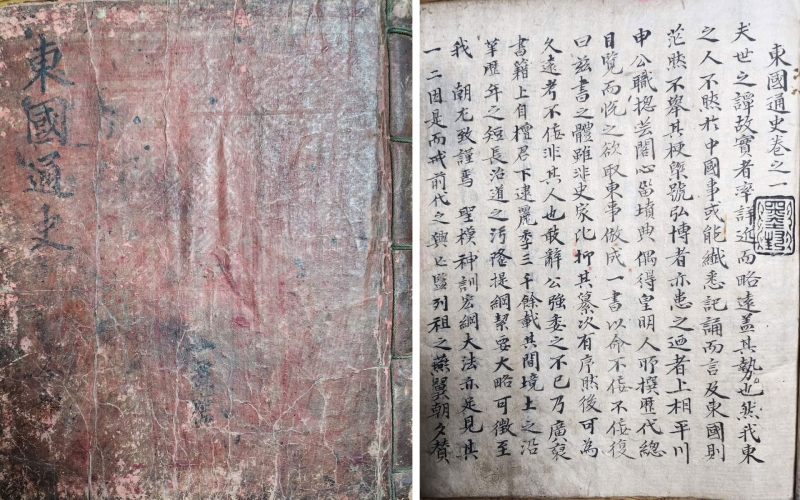 東國通史
東國通史卷之一
夫世之譚故實者率詳近而略遠盖其勢也然我東
之人不然於中國事或能纖悉記誦而言及東國則
茫然不擧其梗槩號弘博者亦患之廼者上相平川
申公職摠芸閣心留墳典偶得皇明人所撰歷代總
目覽而悅之欲取東事倣成一書以命不佞不佞復
曰玆書之體雖非史家化抑其纂次有序然後可爲
久遠考不佞非其人也敢辭公強委之不已乃廣裒
書籍上自檀君下逮麗季三千餘載其間境土之沿
革歷年之短長治道之汚隆提綱挈要大略可徵至
我 朝尤致謹焉 聖模神訓宏綱大法亦足見其
一二因是而戒前代之興亡監列祖之燕翼朝夕贊